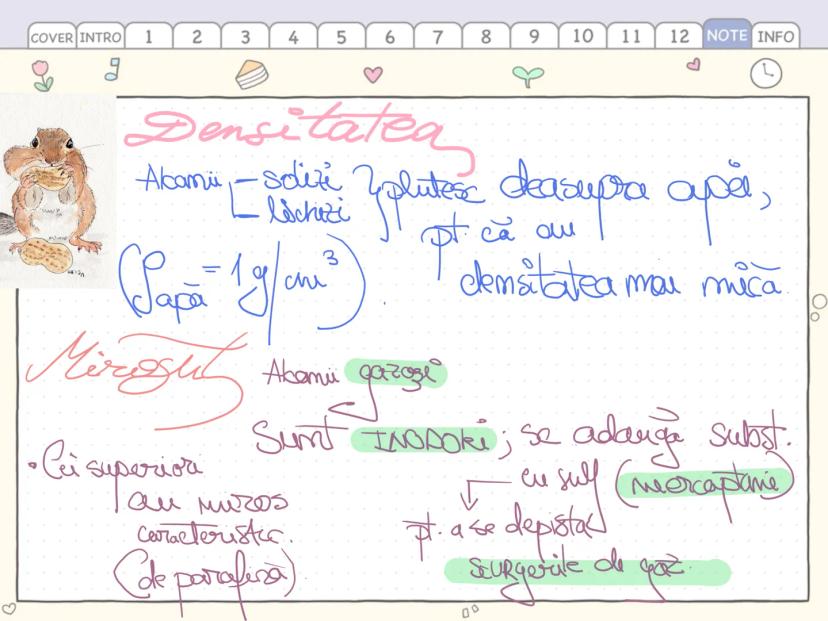 COVER INTRO 1 2 3 4 5 6 7 8 9 10 11 12 NOTE INFO
Densitatea
Alcanii - solizi
lichizi } plutesc deasupra apei,
pt. că au
densitatea mai mică
(ρapă = 1 g/cm³).
Mirosul
Alcanii gazoși
Sunt INODORI; se adaugă subst.
cu sulf (mercaptanie)
pt. a se depista
scurgerile de gaz.
• Cei superiori
au miros
caracteristic.
(de parafină)